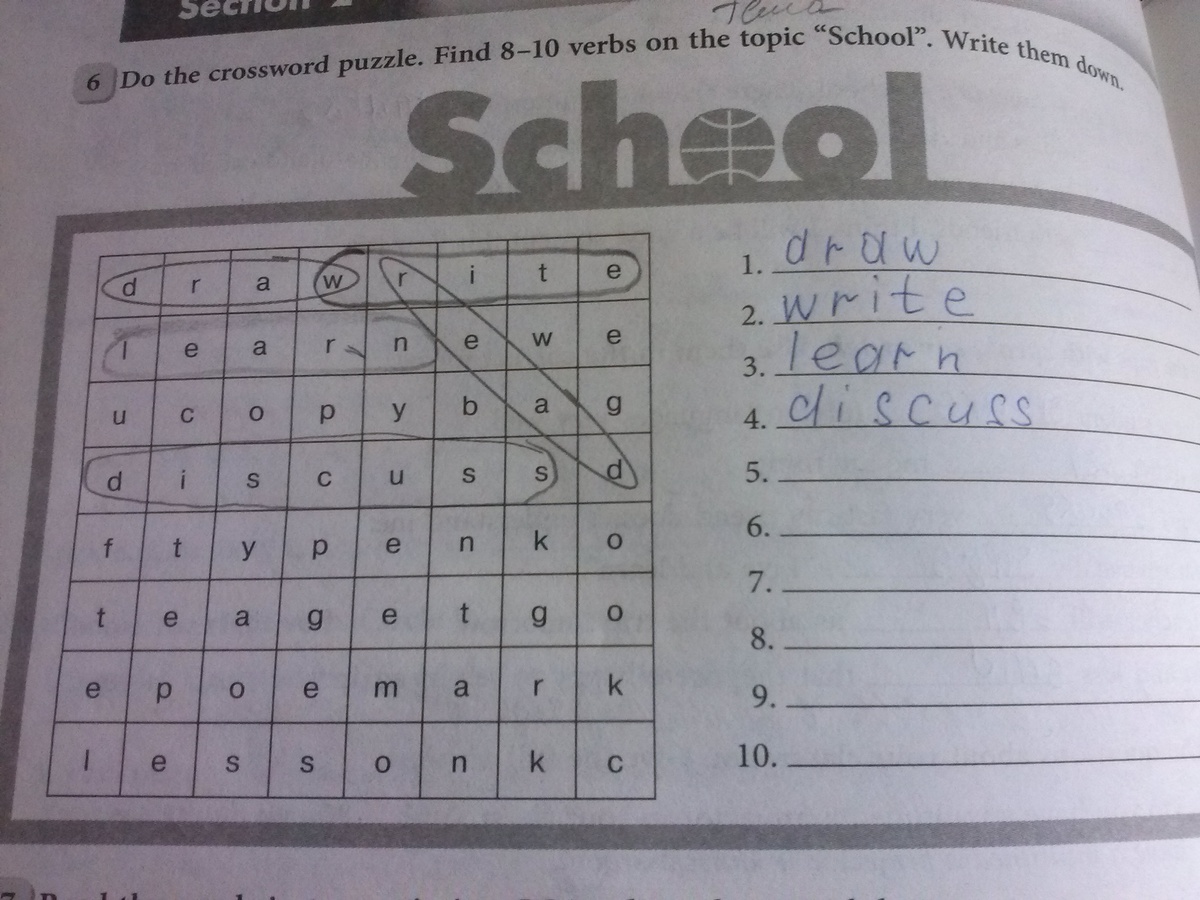 Section 2
6 Do the crossword puzzle. Find 8–10 verbs on the topic “School”. Write them down.
School
d r a w r i t e
l e a r n e w e
u c o p y b a g
d i s c u s s d
f t y p e n k o
t e a g e t g o
e p o e m a r k
l e s s o n k c
1. draw
2. write
3. learn
4. discuss
5.
6.
7.
8.
9.
10.